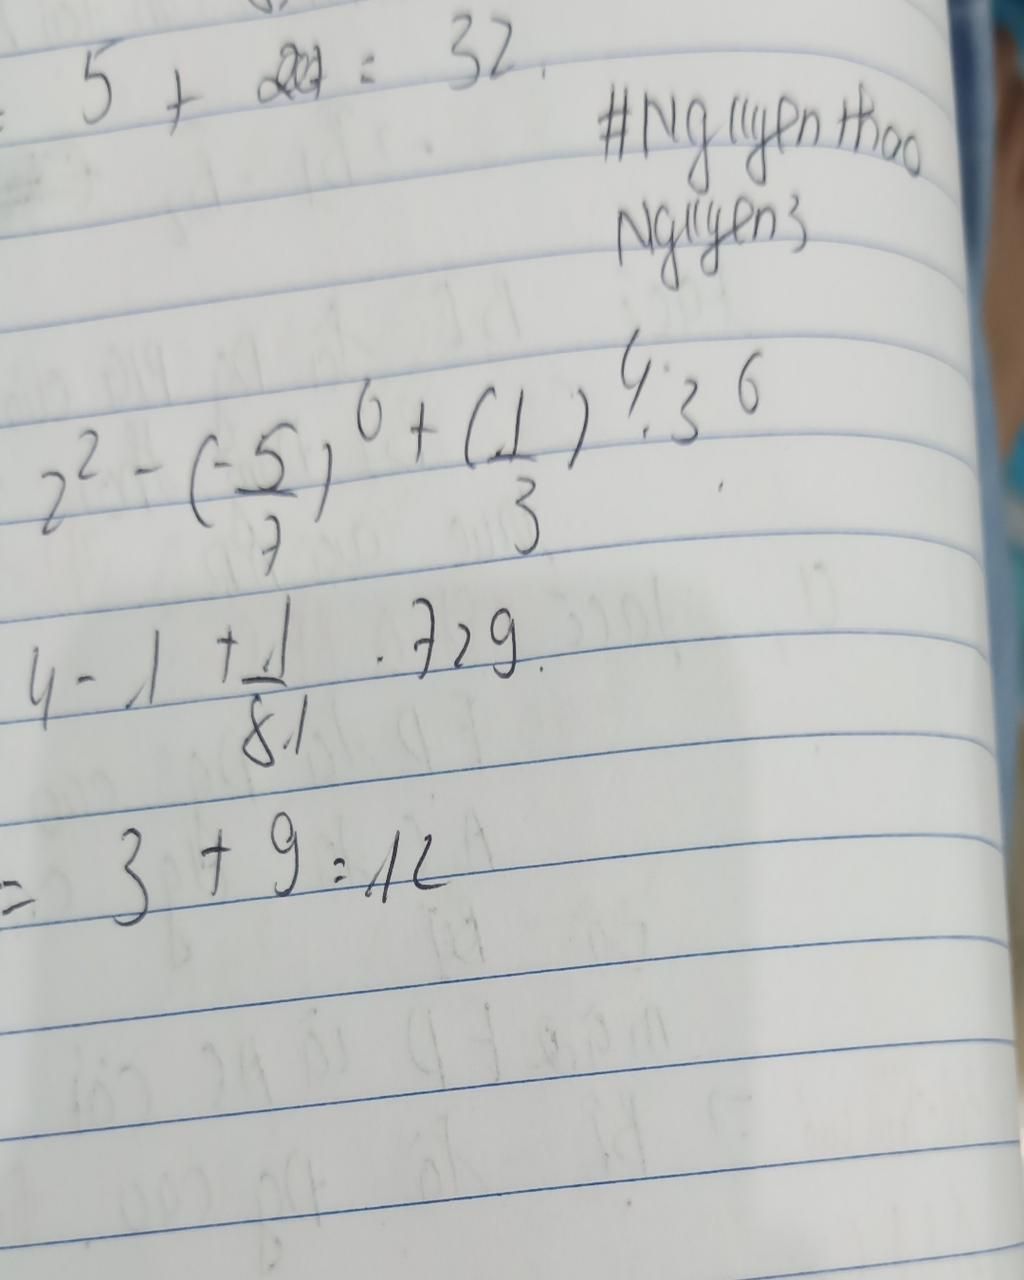 = 5 + 27 = 32.
#Nguyenthao
Nguyen3
2² - (-5/7)⁰ + (1/3)⁴.3⁶
4 - 1 + 1/81 . 729.
= 3 + 9 = 12